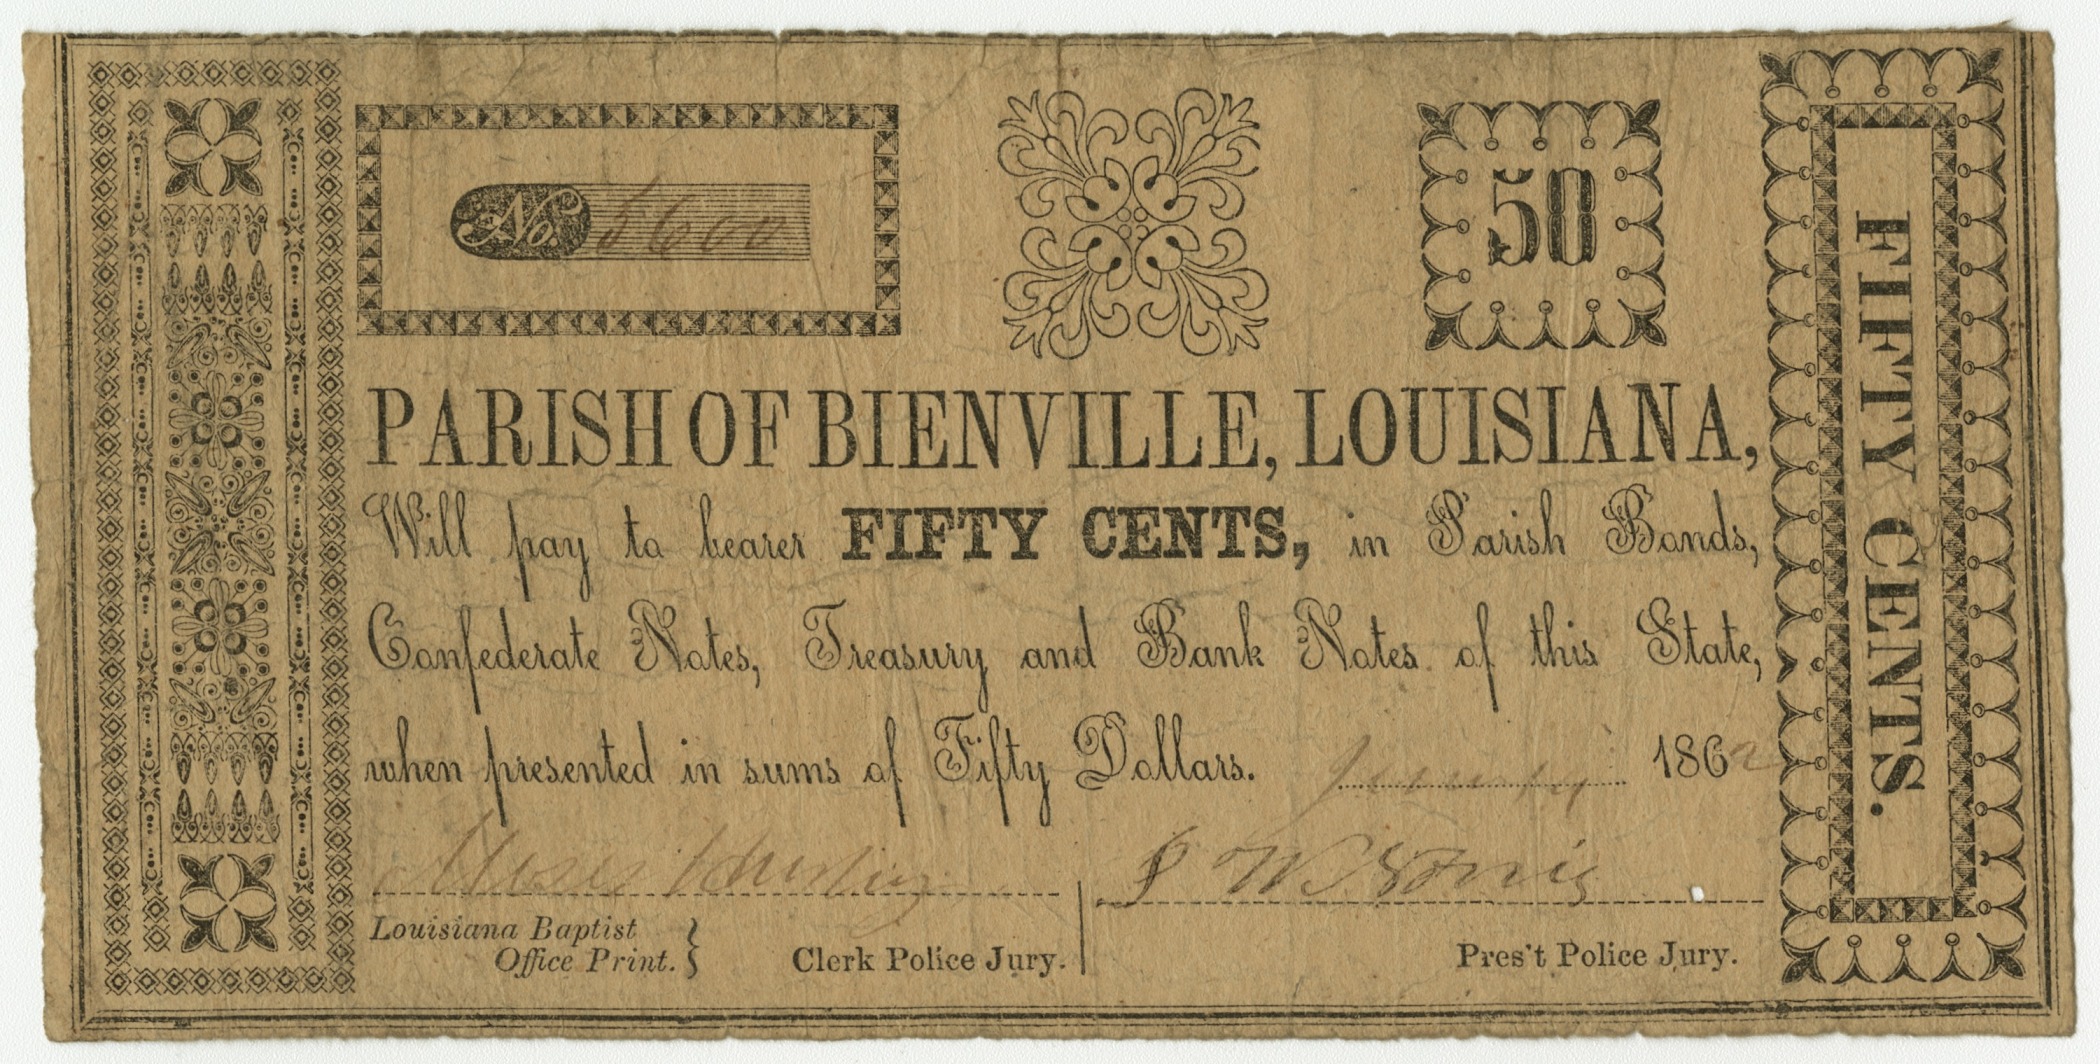 No. 5600
50
PARISH OF BIENVILLE, LOUISIANA,
Will pay to bearer FIFTY CENTS, in Parish Bonds,
Confederate Notes, Treasury and Bank Notes of this State,
when presented in sums of Fifty Dollars. 1862
Louisiana Baptist
Office Print.}
Clerk Police Jury.
Pres't Police Jury.
FIFTY CENTS.